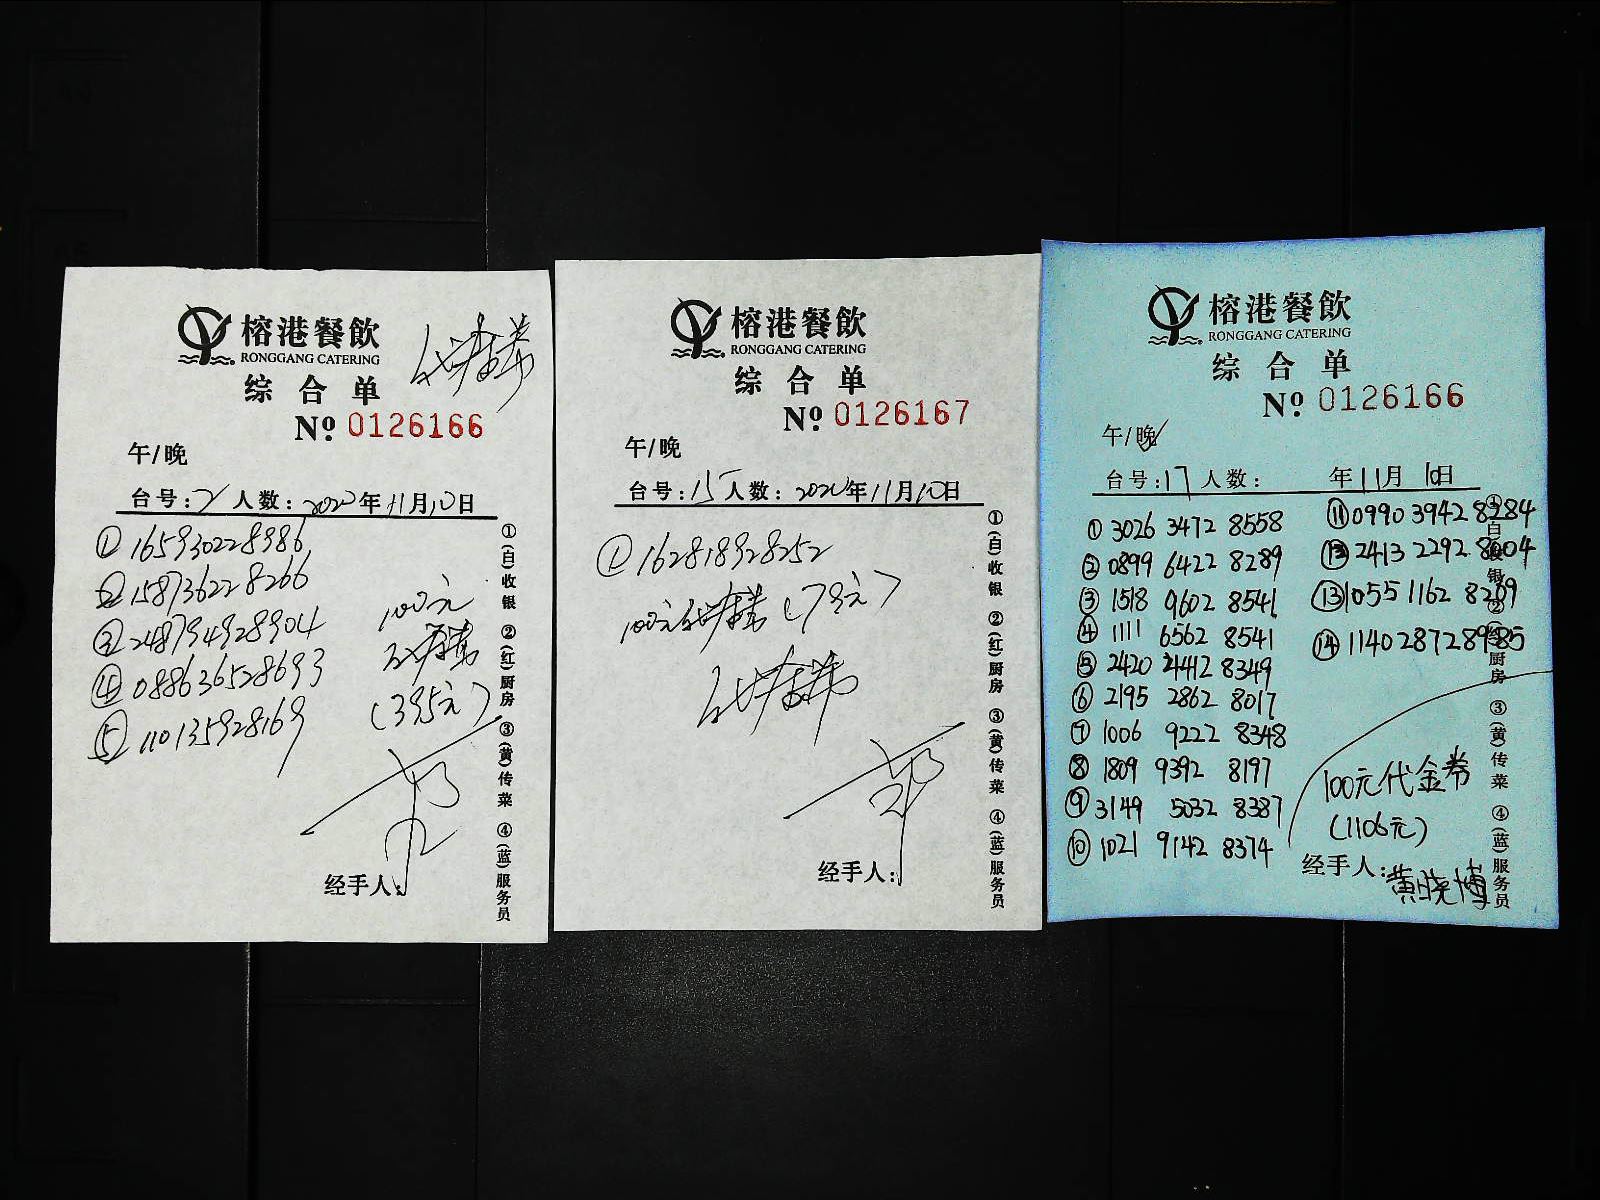 榕港餐飲
RONGGANG CATERING
代金券
综合单
Nº 0126166
午/晚
台号:2 人数: 2020年11月10日
① 165930228986
② 158736228266
③ 248794928904
④ 088636528693
⑤ 110135928169
100元
代金券
(395元)
经手人:
①(白)收银 ②(红)厨房 ③(黄)传菜 ④(蓝)服务员
榕港餐飲
RONGGANG CATERING
综合单
Nº 0126167
午/晚
台号:15 人数: 2020年11月10日
① 162818928252
100元代金券(79元)
代金券
经手人:
①(白)收银 ②(红)厨房 ③(黄)传菜 ④(蓝)服务员
榕港餐飲
RONGGANG CATERING
综合单
Nº 0126166
午/晚
台号:17 人数: 年11月10日
① 3026 3472 8558
② 0899 6422 8289
③ 1518 9602 8541
④ 1111 6562 8541
⑤ 2420 2412 8349
⑥ 2195 2862 8017
⑦ 1006 9222 8348
⑧ 1809 9392 8197
⑨ 3149 5032 8387
⑩ 1021 9142 8374
⑪ 0990 3942 8284
⑫ 2413 2292 8004
⑬ 1055 1162 8209
⑭ 1140 2872 8985
100元代金券
(1106元)
经手人:黄晓博
①(白)收银 ②(红)厨房 ③(黄)传菜 ④(蓝)服务员